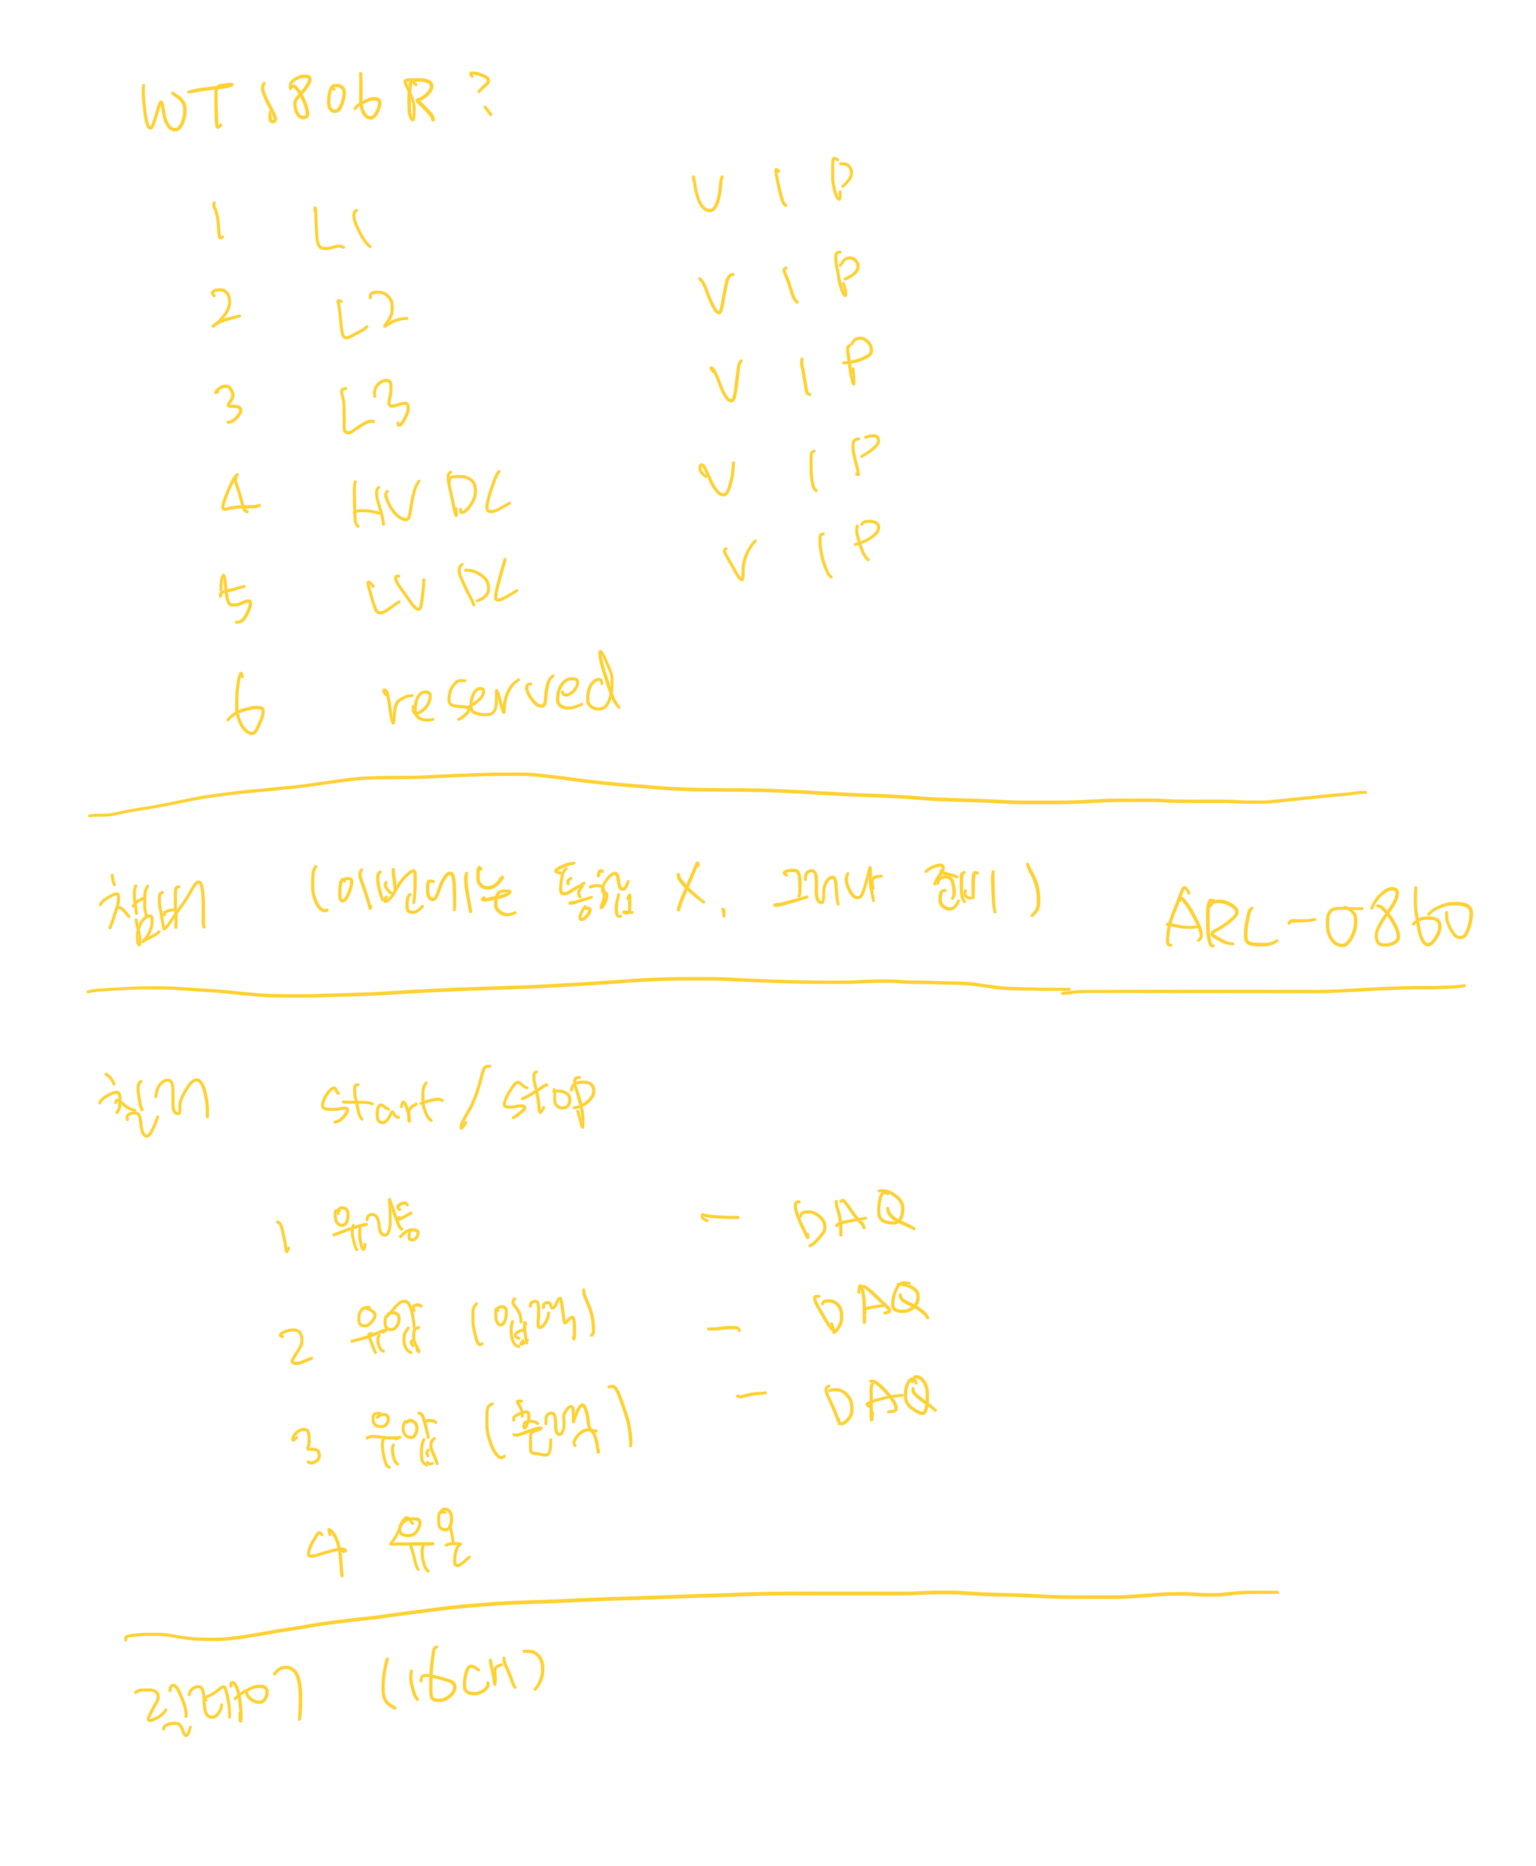 WT 1806R?
1 L1 V I P
2 L2 V I P
3 L3 V I P
4 HV DC V I P
5 LV DC V I P
6 reserved
챔버 (이번에는 통합 X, 그러나 준비) ARL-0860
칠러 start/stop
1 유량 - DAQ
2 유압 (입력) - DAQ
3 유압 (출력) - DAQ
4 유온
(16CH)